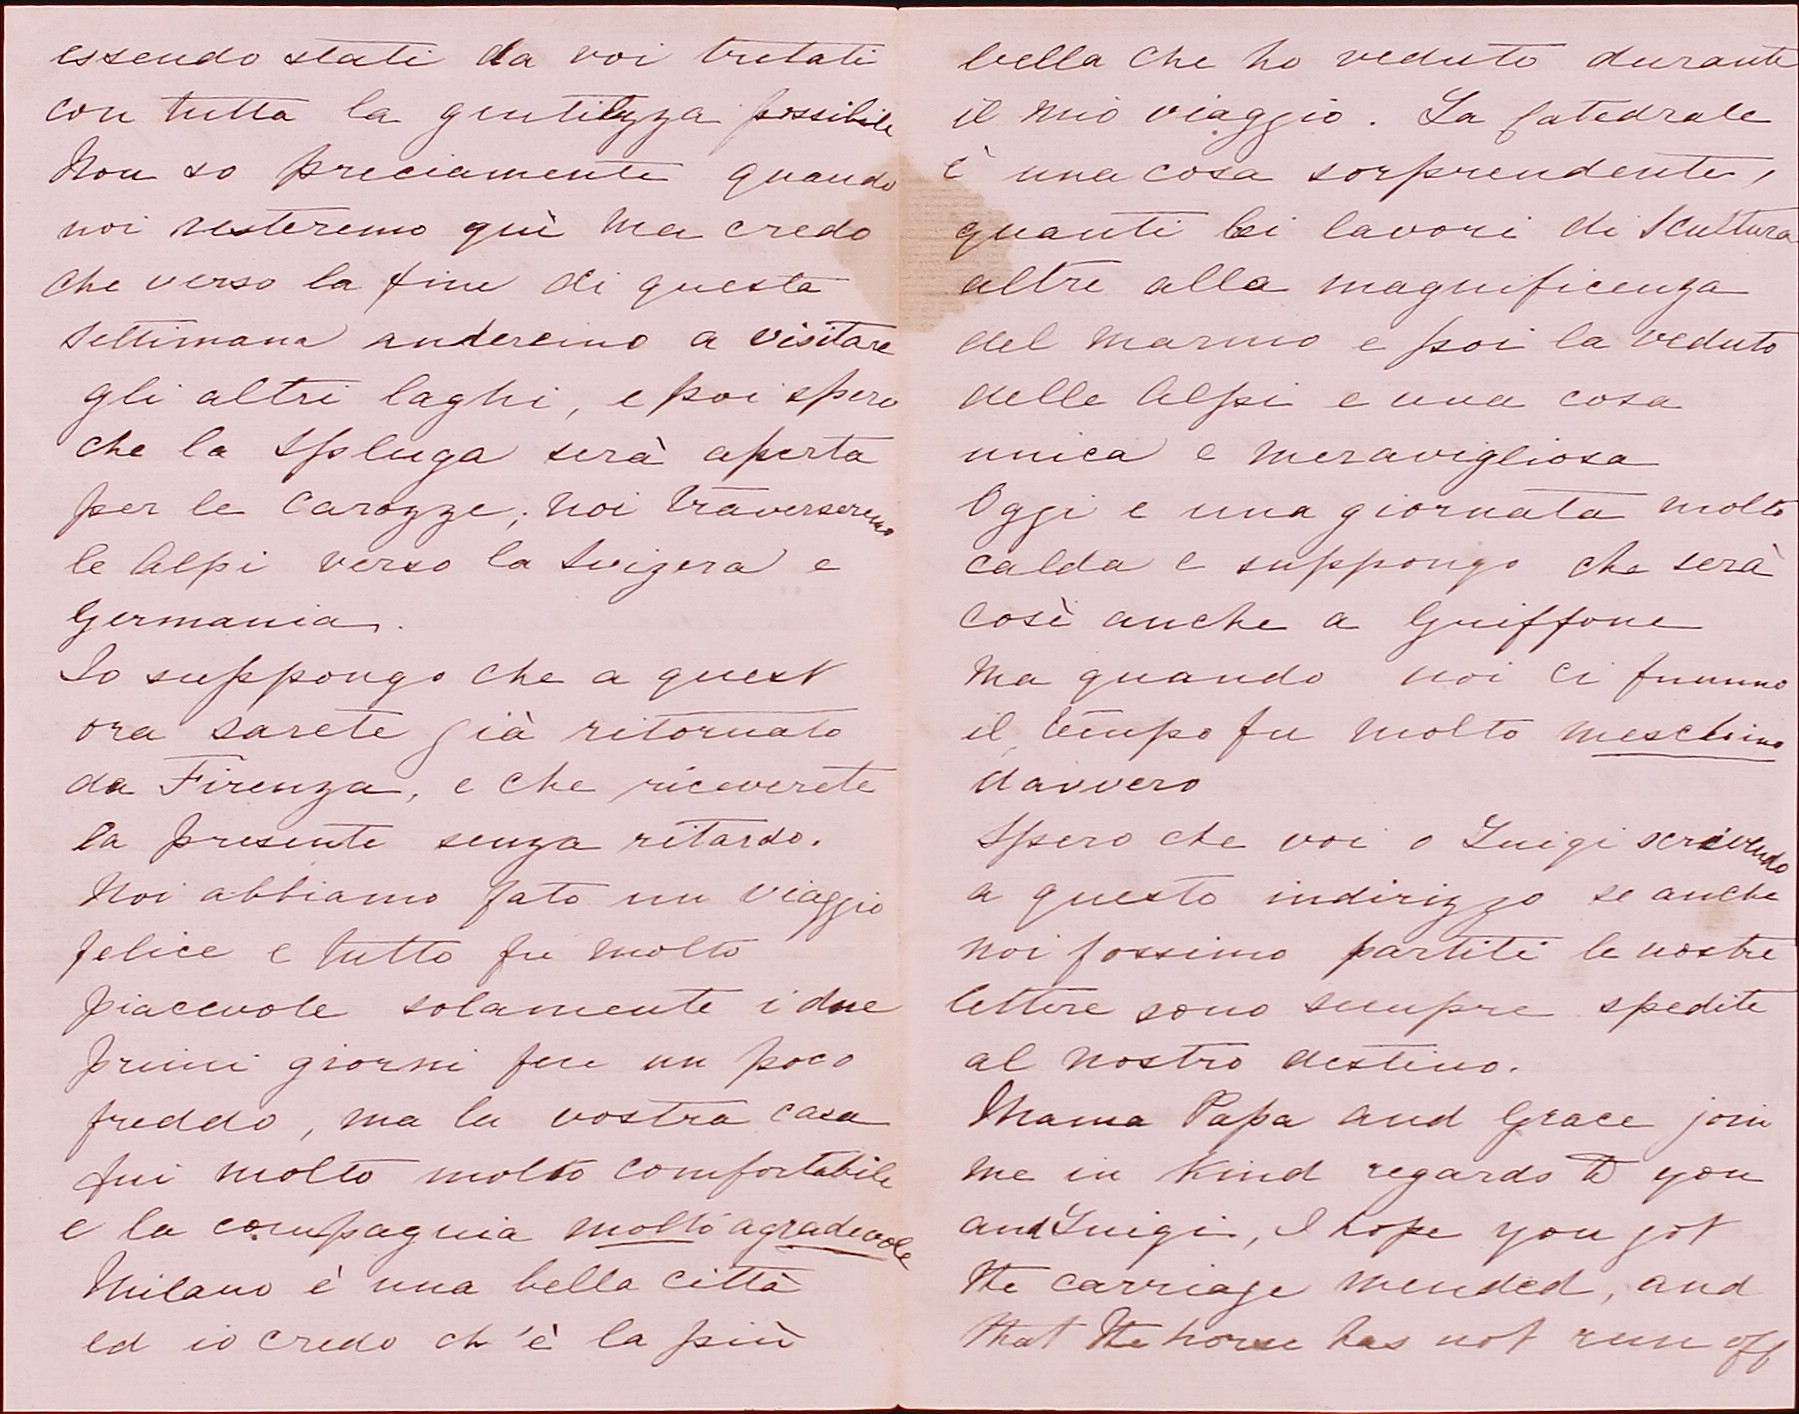 essendo stati da voi tretati
con tutta la gentilezza possibile
Non so preciamente quando
noi resteremo quì ma credo
che verso la fine di questa
settimana anderemo a visitare
gli altri laghi, e poi spero
che la Spluga serà aperta
per le carozze; noi traverseremo
le Alpi verso la Svizera e
Germania.
Io suppongo che a quest
ora sarete già ritornato
da Firenza, e che riceverete
la presente senza ritardo.
Noi abbiamo fato un viaggio
felice e tutto fu molto
piacevole solamente i due
primi giorni fu un poco
freddo, ma la vostra casa
fui molto molto comfortabile
e la compagnia molto agradevole
Milano è una bella città
ed io credo ch'è la più
bella che ho veduto durante
il mio viaggio. La Catedrale
è una cosa sorprendente,
quanti bei lavori di Scultura
altre alla magnificenza
del marmo e poi la veduto
delle Alpi e una cosa
unica e meravigliosa
Oggi e una giornata molto
calda e suppongo che serà
così anche a Griffone
Ma quando noi ci fummo
il tempo fu molto meschino
davvero
Spero che voi o Luigi scrivendo
a questo indirizzo se anche
noi fossimo partiti le nostre
lettere sono sempre spedite
al nostro destino.
Mama Papa and Grace join
me in kind regards to you
and Luigi, I hope you got
the carriage mended, and
that the horse has not run off